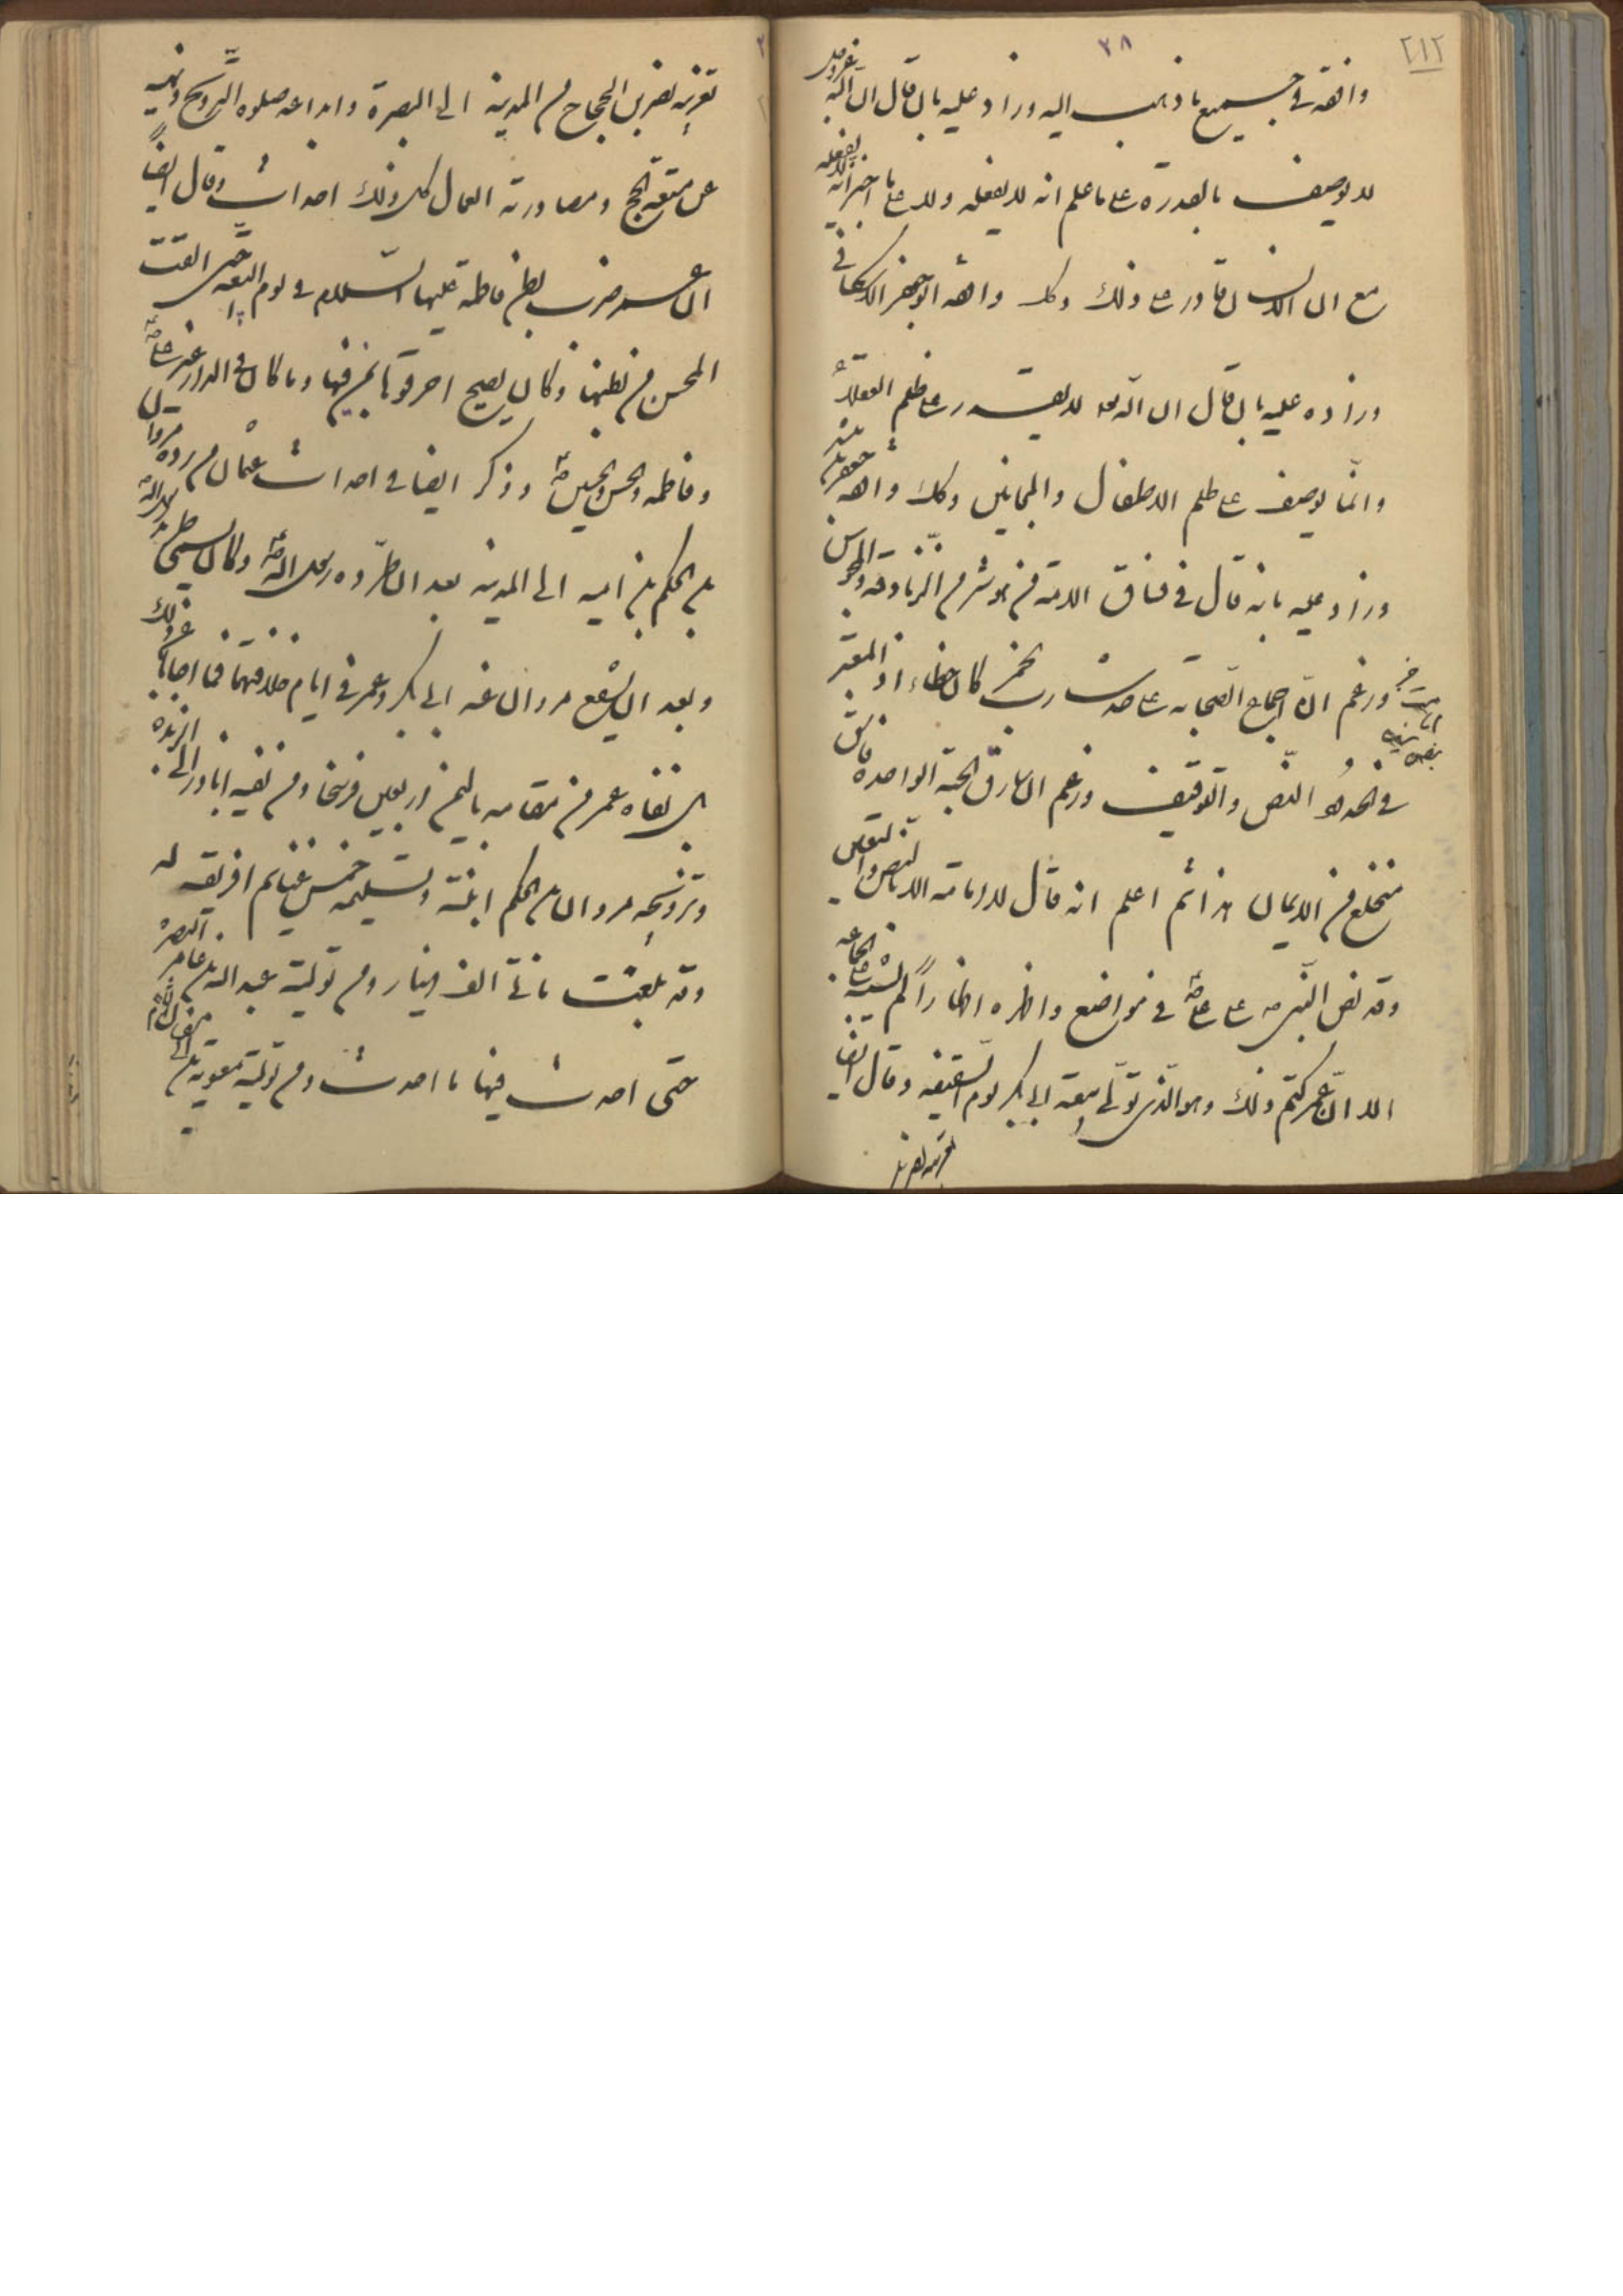 ٢١٢
٢٨
وافقه في جميع ما ذهب اليه وزاد عليه بان قال ان الله عز وجل
لا يوصف بالقدرة على ما علم انه لا يفعله ولا على ما اخبر انه لا يفعله
مع ان الانسان قادر على ذلك وكك وافقه ابو جعفر الاسكافي
وزاده عليه بان قال ان الله تعه لا يقدر على ظلم العقلاء
وانما يوصف على ظلم الاطفال والمجانين وكك وافقه جعفر بن مبشر
وزاد عليه بانه قال في فساق الامة من هو شر من الزنادقة والمجوس
وزعم ان اجماع الصحابه على حد شارب الخمر كان خطاء اذ المعتبر
في الحدود النص والتوقيف وزعم ان سارق الحبة الواحدة فاسق
منخلع من الايمان هذا ثم اعلم انه قال لا امامة الا بالنص والتعيين
وقد نص النبي ص على علي ع في مواضع واظهره اظهاراً لم يشتبه على الجماعه
الا ان عمر كتم ذلك وهو الذي تولى بيعة ابي بكر يوم السقيفه وقال ايضا
تغريبه نصر بن
تغريبه نصر بن الحجاج من المدينه الى البصرة وابداعه صلوه التروايح ونهيه
عن متعه الحج ومصادرته العمال كل ذلك احداث وقال ايضاً
ان عمر ضرب بطن فاطمه عليها السلام في يوم البيعه حتى القت
المحسن من بطنها وكان يصيح احرقوها بمن فيها وما كان في الدار غير علي
وفاطمه والحسن والحسين وذكر ايضا في احداث عثمان من رده مروان
بن الحكم بن اميه الى المدينه بعد ان طرده رسول الله وكان يسمى طريد رسول الله
وبعد ان تشفع مروان عنه ابي بكر وعمر في ايام خلافتهما فما اجابا في ذلك
بل نفاه عمر من مقامه باليمن اربعين فرسخا ومن نفيه اباذر الى الربذه
وتزويجه مروان بن الحكم ابنته وتسليمه خمس غنايم افريقه له
وقد بلغت مائة الف دينار ومن تولية عبد الله بن عامر البصره
حتى احدث فيها ما احدث ومن تولية معويه بن ابي سفيان الشام